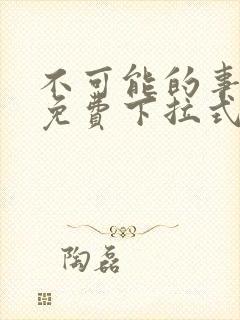 不可能的事
免费下拉式
陶磊